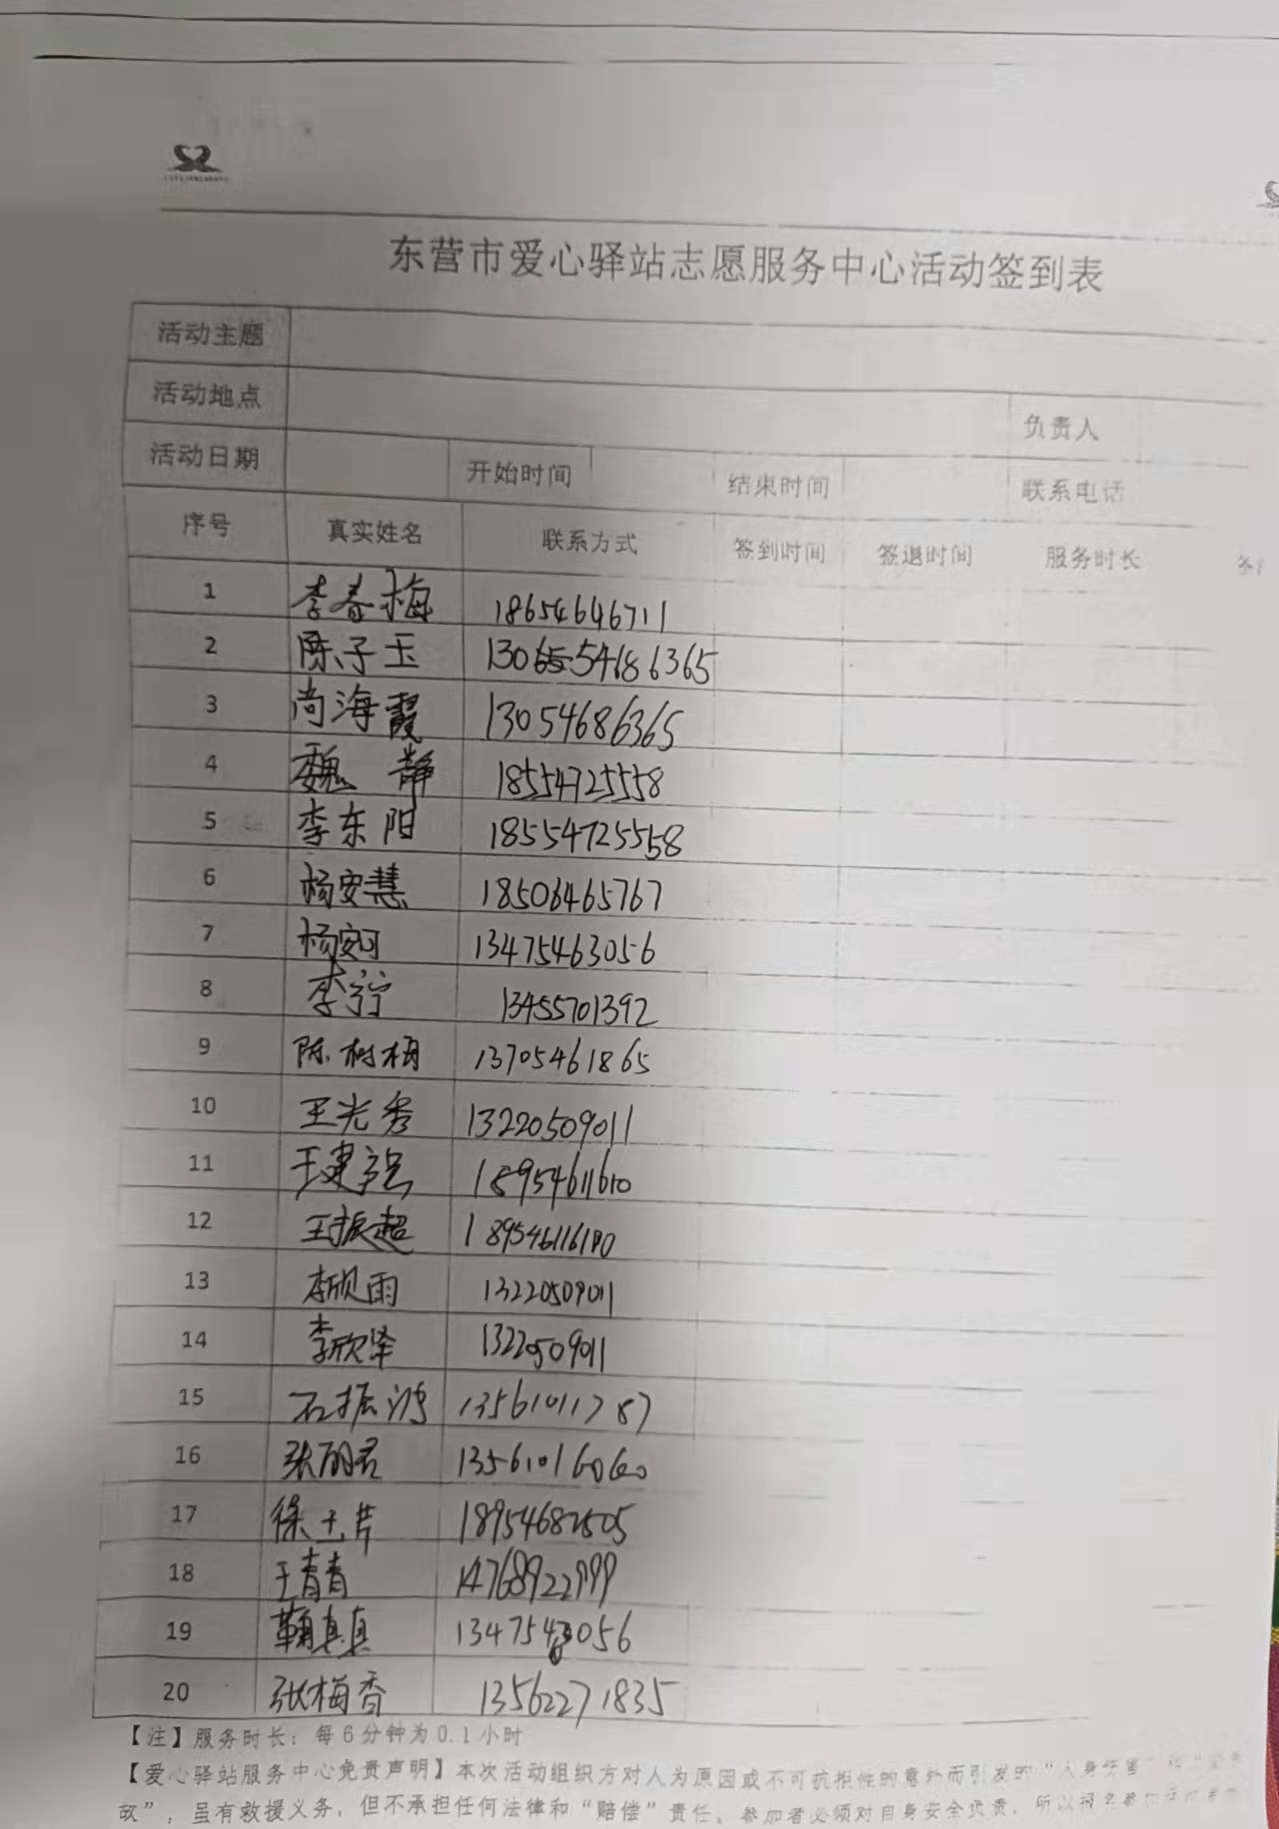 东营市爱心驿站志愿服务中心活动签到表
活动主题
活动地点 负责人
活动日期 开始时间 结束时间 联系电话
序号 真实姓名 联系方式 签到时间 签退时间 服务时长
1 李春梅 18654646711
2 陈子玉 13054686365
3 尚海霞 13054686365
4 魏静 18554725558
5 李东阳 18554725558
6 杨安慧 18506465767
7 杨安可 13475463056
8 李宁 13455701392
9 陈树梅 13705461865
10 王光秀 13220509011
11 王建强 18954611610
12 王振超 18954611610
13 李欣雨 13220509011
14 李欣泽 13220509011
15 石振鸿 13561011787
16 张丽君 13561016060
17 徐玉芹 18954682505
18 王青青 14768922999
19 鞠真真 13475463056
20 张梅香 13562271835
【注】服务时长：每6分钟为0.1小时
【爱心驿站服务中心免责声明】本次活动组织方对人为原因或不可抗拒性的意外而引发的“人身伤害”
故”，虽有救援义务，但不承担任何法律和“赔偿”责任。参加者必须对自身安全负责，所以报名参加